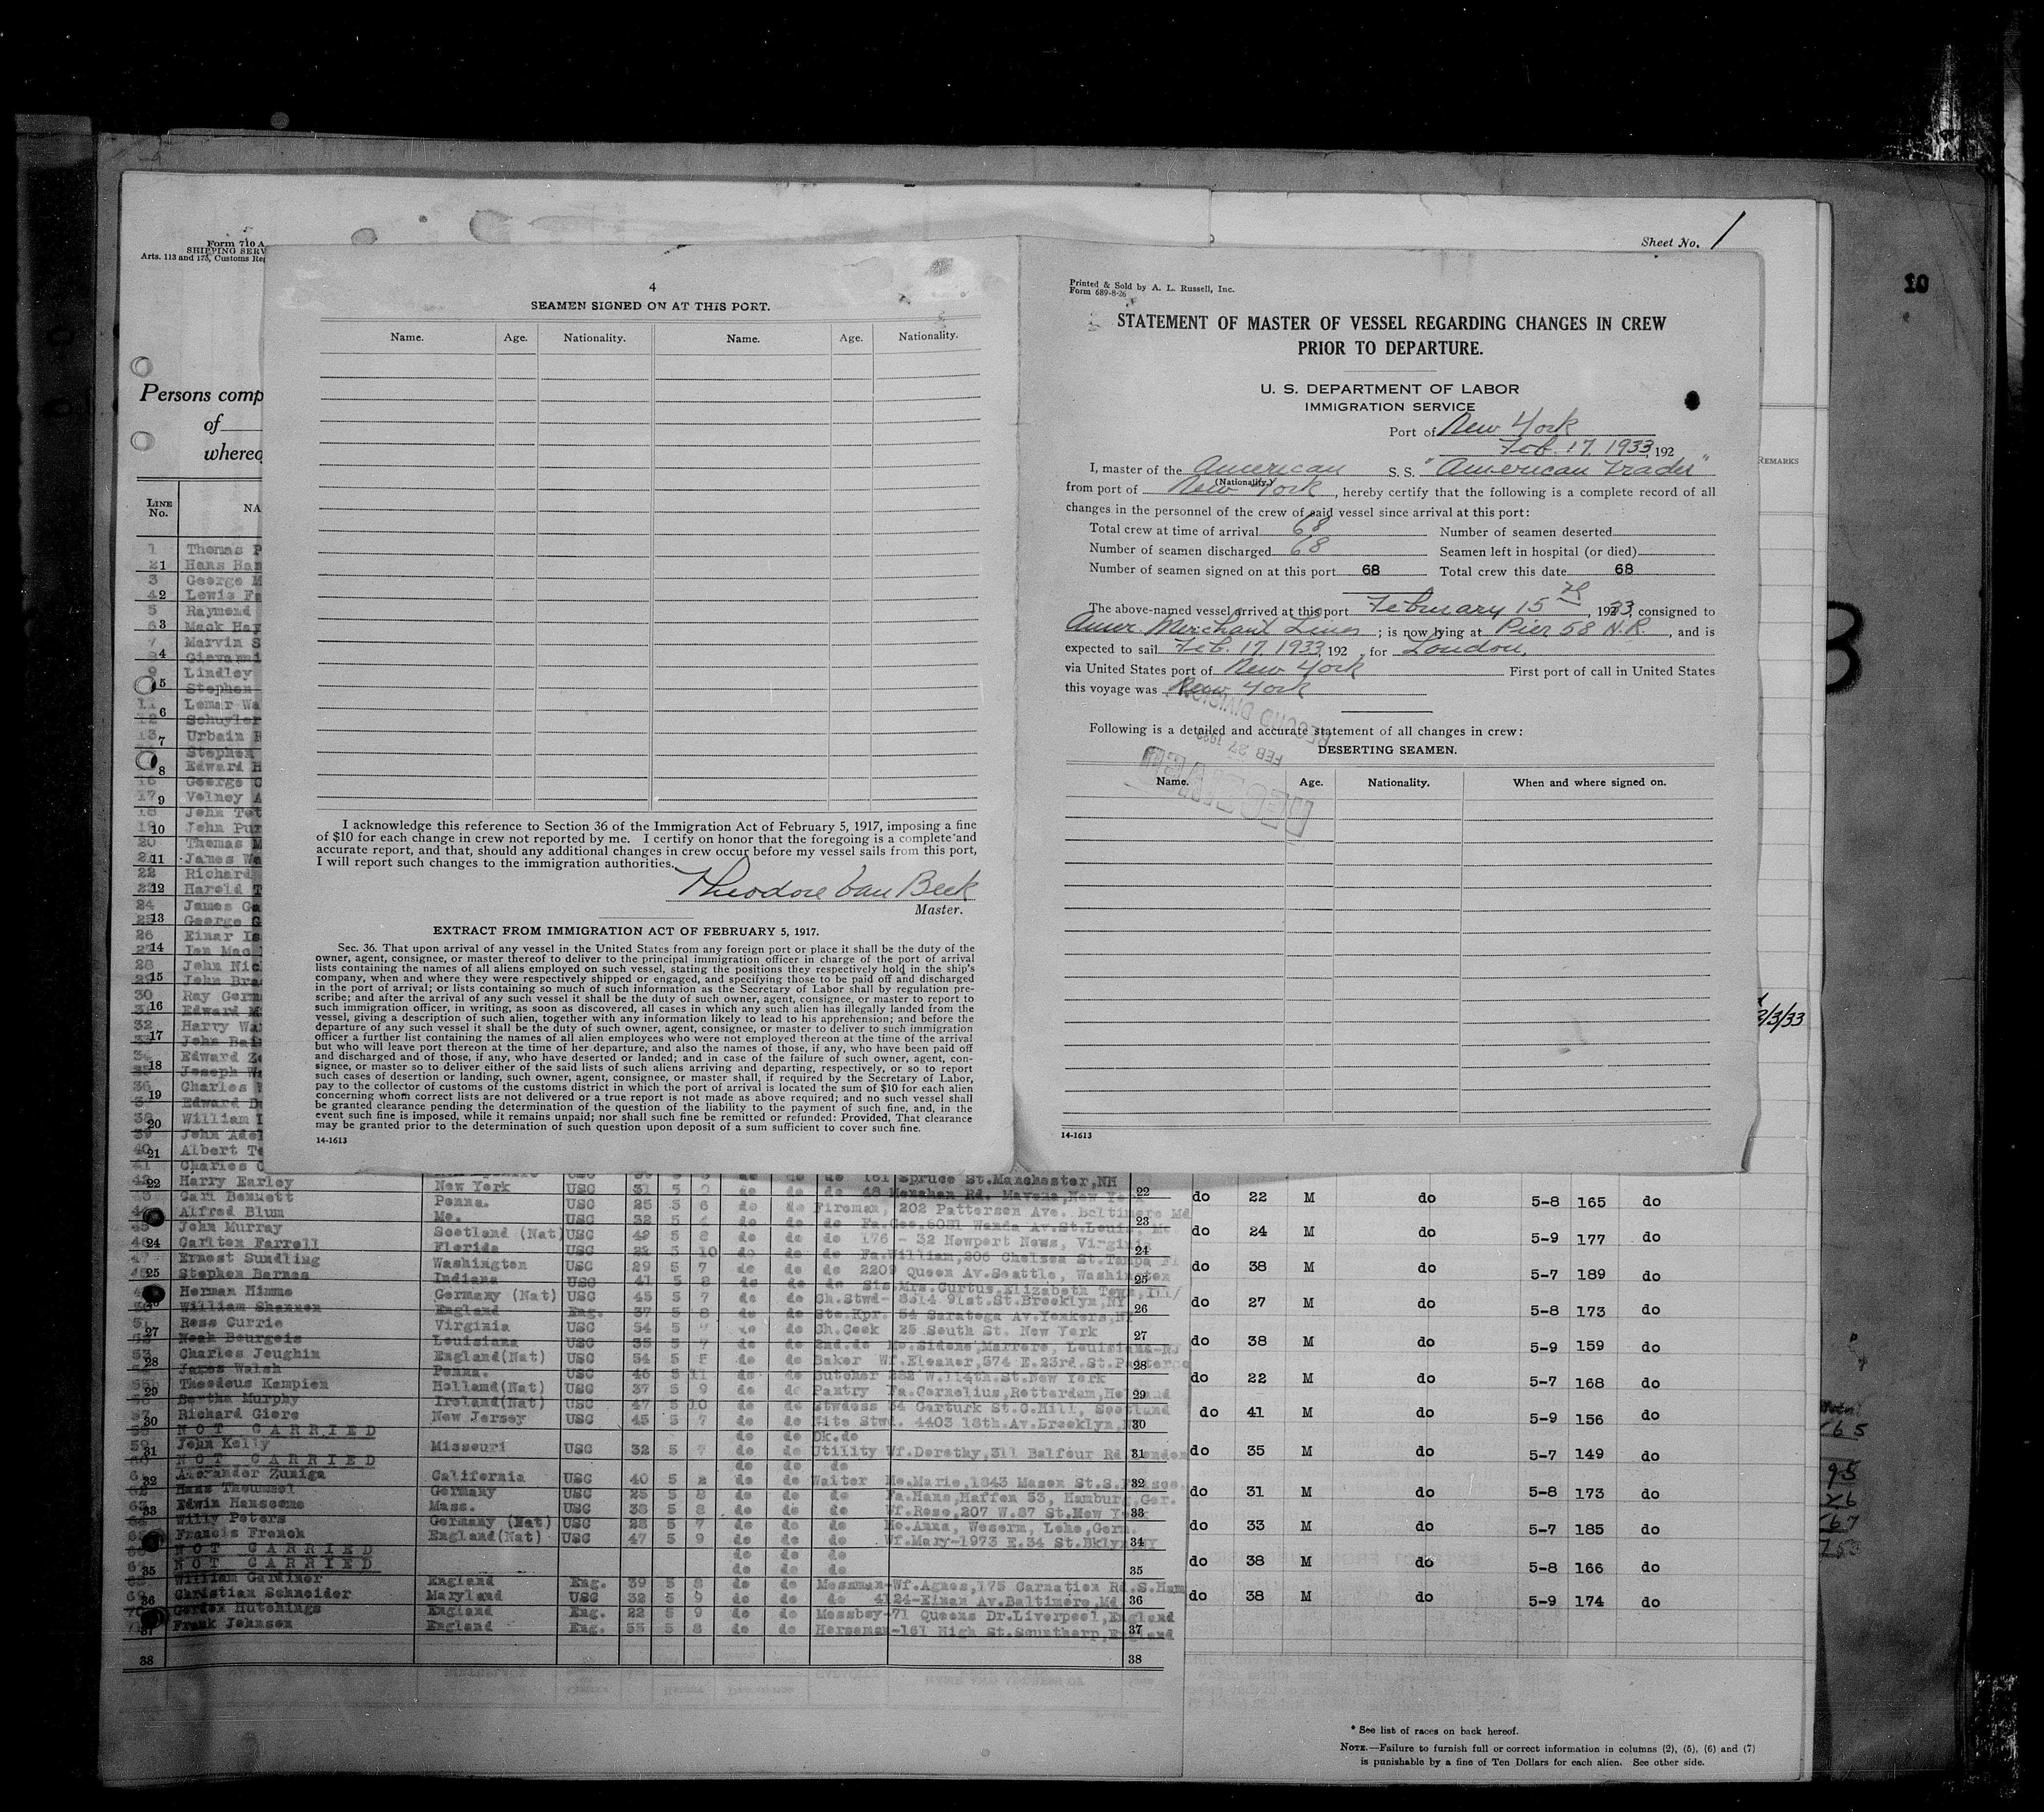 Form 710 A
SHIPPING SERV
Arts. 113 and 175, Customs Reg
Persons comp
of
whereo
LINE No.
NA
1 Thomas P
2 Hans Han
3 George M
4 Lewis Fa
5 Raymond
6 Mack Hay
7 Marvin S
8 Giovanni
9 Lindley
Stephen
11 Lemar Wa
12 Schuyler
13 Urbain H
Stephen
Edward H
16 George C
17 Velney A
18 John Tet
19 John Pur
20 Thomas M
21 James Wa
22 Richard
23 Harold T
24 James Ga
25 George G
26 Einar Is
27 Ian Mac
28 John Nic
29 John Bra
30 Ray Germ
31 Edward M
32 Harry Wa
33 John Bai
34 Edward Ze
35 Joseph Wa
36 Charles W
37 Edward D
38 William L
39 John Adel
40 Albert Te
41 Charles C
4
SEAMEN SIGNED ON AT THIS PORT.
Name. Age. Nationality. Name. Age. Nationality.
I acknowledge this reference to Section 36 of the Immigration Act of February 5, 1917, imposing a fine
of $10 for each change in crew not reported by me. I certify on honor that the foregoing is a complete and
accurate report, and that, should any additional changes in crew occur before my vessel sails from this port,
I will report such changes to the immigration authorities.
Theodore Van Beek
Master.
EXTRACT FROM IMMIGRATION ACT OF FEBRUARY 5, 1917.
Sec. 36. That upon arrival of any vessel in the United States from any foreign port or place it shall be the duty of the
owner, agent, consignee, or master thereof to deliver to the principal immigration officer in charge of the port of arrival
lists containing the names of all aliens employed on such vessel, stating the positions they respectively hold in the ship's
company, when and where they were respectively shipped or engaged, and specifying those to be paid off and discharged
in the port of arrival; or lists containing so much of such information as the Secretary of Labor shall by regulation pre-
scribe; and after the arrival of any such vessel it shall be the duty of such owner, agent, consignee, or master to report to
such immigration officer, in writing, as soon as discovered, all cases in which any such alien has illegally landed from the
vessel, giving a description of such alien, together with any information likely to lead to his apprehension; and before the
departure of any such vessel it shall be the duty of such owner, agent, consignee, or master to deliver to such immigration
officer a further list containing the names of all alien employees who were not employed thereon at the time of the arrival
but who will leave port thereon at the time of her departure, and also the names of those, if any, who have been paid off
and discharged and of those, if any, who have deserted or landed; and in case of the failure of such owner, agent, con-
signee, or master so to deliver either of the said lists of such aliens arriving and departing, respectively, or so to report
such cases of desertion or landing, such owner, agent, consignee, or master shall, if required by the Secretary of Labor,
pay to the collector of customs of the customs district in which the port of arrival is located the sum of $10 for each alien
concerning whom correct lists are not delivered or a true report is not made as above required; and no such vessel shall
be granted clearance pending the determination of the question of the liability to the payment of such fine, and, in the
event such fine is imposed, while it remains unpaid; nor shall such fine be remitted or refunded: Provided, That clearance
may be granted prior to the determination of such question upon deposit of a sum sufficient to cover such fine.
14-1613
Sheet No. 1
10
REMARKS
Printed & Sold by A. L. Russell, Inc.
Form 689-8-26
STATEMENT OF MASTER OF VESSEL REGARDING CHANGES IN CREW
PRIOR TO DEPARTURE.
U. S. DEPARTMENT OF LABOR
IMMIGRATION SERVICE
Port of New York
Feb. 17, 1933, 192
I, master of the American S. S. "American Trader"
(Nationality.)
from port of New York, hereby certify that the following is a complete record of all
changes in the personnel of the crew of said vessel since arrival at this port:
Total crew at time of arrival 68 Number of seamen deserted
Number of seamen discharged 68 Seamen left in hospital (or died)
Number of seamen signed on at this port 68 Total crew this date 68
The above-named vessel arrived at this port February 15th, 1933, consigned to
Amer. Merchant Lines; is now lying at Pier 58 N.R., and is
expected to sail Feb. 17, 1933, 192, for London,
via United States port of New York First port of call in United States
this voyage was New York
Following is a detailed and accurate statement of all changes in crew:
DESERTING SEAMEN.
RECEIVED
FEB 27 1933
SECOND DIVISION
Name. Age. Nationality. When and where signed on.
14-1613
2/3/33
Harry Earley New York USC 31 5 do do do 48 Menahan Rd. Mavena, New Y
Carl Bennett Penna. USC 25 5 6 do do Fireman, 202 Patterson Ave. Baltimore Md
Alfred Blum Mo. USC 32 5 do do do Fa.Geo.6081 Wanda Av.St.Louis, Mo
John Murray Scotland (Nat) USC 49 5 8 do do do 176 - 32 Newport News, Virginia
Carlton Farrell Florida USC 22 5 10 do do do Fa.William,206 Chelsea St.Tampa Fl
Ernest Sundling Washington USC 29 5 7 do do do 2209 Queen Av.Seattle, Washington
Stephen Barnes Indiana USC 41 5 8 do do do Sis.Mrs.Curtus,Elizabeth Town,Ill/
Herman Himme Germany (Nat) USC 45 5 7 do do Ch.Stwd- 8514 91st.St.Brooklyn,NY
William Shannon England Eng. 37 5 8 do do Sto.Kpr. 54 Saratoga Av.Yonkers,NY
Ross Currie Virginia USC 54 5 do do Ch.Cook 25 South St. New York
Noah Bourgeis Louisiana USC 35 5 7 do do 2nd.do Mo.Sidone,Marrero, Louisiana
Charles Joughin England(Nat) USC 54 5 5 do do Baker Wf.Eleanor,574 E.23rd.St.Paterso
James Walsh Penna. USC 46 5 11 do do Butcher 282 W.114th.St.New York
Theodeus Kampien Holland(Nat) USC 37 5 9 do do Pantry Fa.Cornelius,Rotterdam,Holland
Bertha Murphy Ireland(Nat) USC 47 5 10 do do Stwdess 54 Garturk St.G.Hill, Scotland
Richard Giere New Jersey USC 45 5 7 do do Nite Stwd. 4403 18th.Av.Brooklyn,N
NOT CARRIED do do Dk.do
John Kelly Missouri USC 32 5 7 do do Utility Wf.Dorothy,311 Balfour Rd London
NOT CARRIED do do do
Alexander Zuniga California USC 40 5 2 do do Waiter Mo.Marie,1843 Mason St.S.Fnsco.
Hans Theummel Germany USC 25 5 8 do do do Fa.Hans,Haffen 53, Hamburg,Ger.
Edwin Hanscome Mass. USC 38 5 8 do do do Wf.Rose,207 W.87 St.New York
Willy Peters Germany (Nat) USC 28 5 7 do do do Mo.Anna, Weserm, Lehe,Germ.
Francis French England(Nat) USC 47 5 9 do do do Wf.Mary-1973 E.34 St.Bklyn NY
NOT CARRIED do do do
NOT CARRIED do do do
William Gardiner England Eng. 39 5 8 do do Messman-Wf.Agnes,175 Carnation Rd.S.Ham
Christian Schneider Maryland USC 32 5 9 do do do 4124-Einan Av.Baltimore,Md
Gordon Hutchings England Eng. 22 5 9 do do Messboy-71 Queens Dr.Liverpool,England
Frank Johnson England Eng. 55 5 8 do do Horseman-161 High St.Scunthorp,England
38 38
22 do 22 M do 5-8 165 do
23 do 24 M do 5-9 177 do
24 do 38 M do 5-7 189 do
25 do 27 M do 5-8 173 do
26 do 38 M do 5-9 159 do
27 do 22 M do 5-7 168 do
28 do 41 M do 5-9 156 do
29 do 35 M do 5-7 149 do
30 do 31 M do 5-8 173 do
31 do 33 M do 5-7 185 do
32 do 38 M do 5-8 166 do
33 do 38 M do 5-9 174 do
* See list of races on back hereof.
NOTE.—Failure to furnish full or correct information in columns (2), (5), (6) and (7)
is punishable by a fine of Ten Dollars for each alien. See other side.